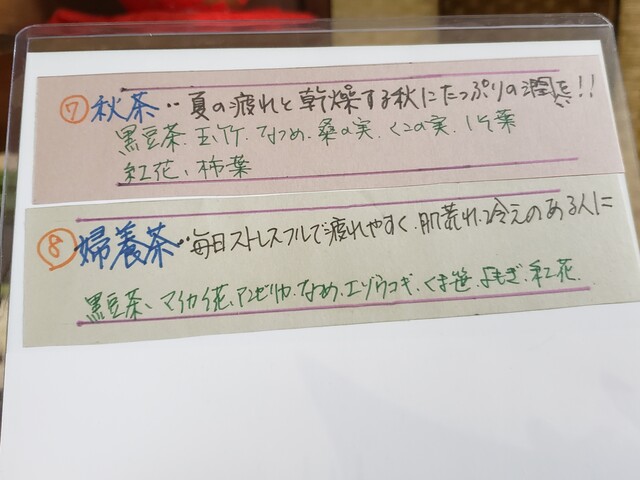 ⑦ 秋茶‥夏の疲れと乾燥する秋にたっぷりの潤を!!
黒豆茶、玉竹、なつめ、桑の実、くこの実、しそ葉
紅花、柿葉
⑧ 婦養茶‥毎日ストレスフルで疲れやすく、肌荒れ、冷えのある人に
黒豆茶、マイカイ花、アンゼリカ、なつめ、エゾウコギ、くま笹、よもぎ、紅花